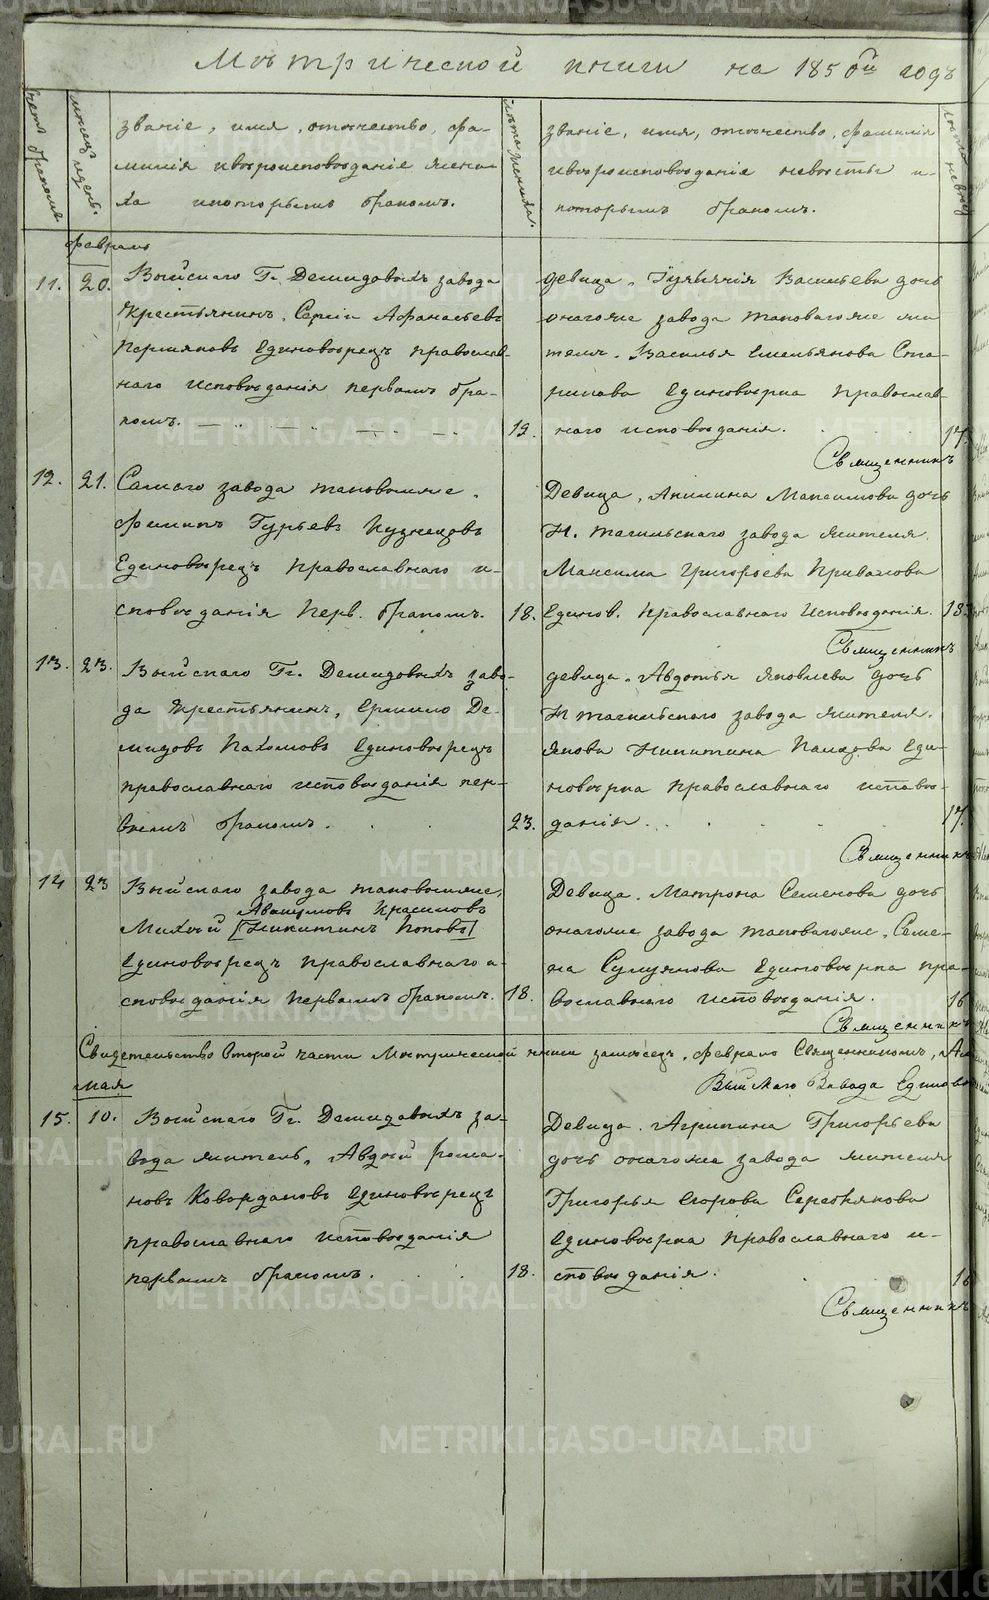 Метрической книги на 1850й годъ
Счетъ браковъ
Месяцъ и день.
званіе, имя, отъчество, фа-
милія ивѣроисповѣданіе жени-
ха икоторымъ бракомъ.
Лета жениха.
званіе, имя, отъчество, фамилія
ивѣроисповѣданіе невѣсты и-
которымъ бракомъ.
февраль
11. 20. Выйскаго Гг. Демидовыхъ завода
Крестьянинъ, Сергіи Афанасьевъ
Пермяковъ Единовѣрецъ православ-
наго исповѣданія первымъ бра-
комъ.
19.
девица, Васильева дочь
онагоже завода таковагоже жи
теля. Василья Емельянова
Единовѣрка Православ-
наго исповѣданія. 17.
Священникъ
12. 21. Самаго завода таковыяже.
Филипъ Гурьевъ Кузнецовъ
Единовѣрецъ Православнаго и-
сповѣданія Перв. бракомъ. 18.
Девица, Акилина Максимова дочь
Н. тагильскаго завода жителя.
Максима Григорьева Привалова
Единов. Православнаго Исповѣданія. 18.
Священникъ
13. 23. Выйскаго Гг. Демидовыхъ заво-
да Крестьянинъ, Ермило Де-
мидовъ Пахомовъ Единовѣрецъ
православнаго исповѣданія пер-
вымъ бракомъ. 23.
девица. Авдотья Яковлева дочь
Н тагильскаго завода жителя.
Якова Никитина Еди-
новѣрка Православнаго исповѣ-
данія. 17.
Священникъ
14 23 Выйскаго завода таковыяже,
Авакумовъ Красиловъ
Михей [Никитинъ Поповъ]
Единовѣрецъ Православнаго и-
сповѣданія первымъ бракомъ. 18.
Девица. Матрона Семенова дочь
онагоже завода таковагоже, Семе-
на Единовѣрка пра-
вославнаго исповѣданія. 16
Священникъ
Свидетельство второй части Метрической книги замесецъ, февраль Священникомъ,
Выйскаго Завода Единов
мая
15. 10. Выйскаго Гг. Демидовыхъ за-
вода житель, Авдей рома-
новъ Единовѣрецъ
православнаго исповѣданія
первымъ бракомъ. 18.
Девица. Агрипина Григорьева
дочь онагоже завода жителя
Григорья Егорова Серебрякова
Единовѣрка Православнаго и-
сповѣданія. 16
Священникъ